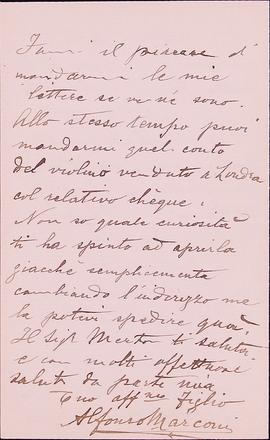 Fammi il piacere di
mandarmi le mie
lettere se ve ne sono.
Allo stesso tempo puoi
mandarmi quel conto
del violino venduto a Londra
col relativo chèque.
Non so quale curiosità
ti ha spinto ad aprirla
giacchè semplicemente
cambiando l'indirizzo me
la potevi spedire quà.
Il Sigr. Merto ti saluta
e con molti affettuosi
saluti da parte mia
Tuo affmo Figlio
Alfonso Marconi